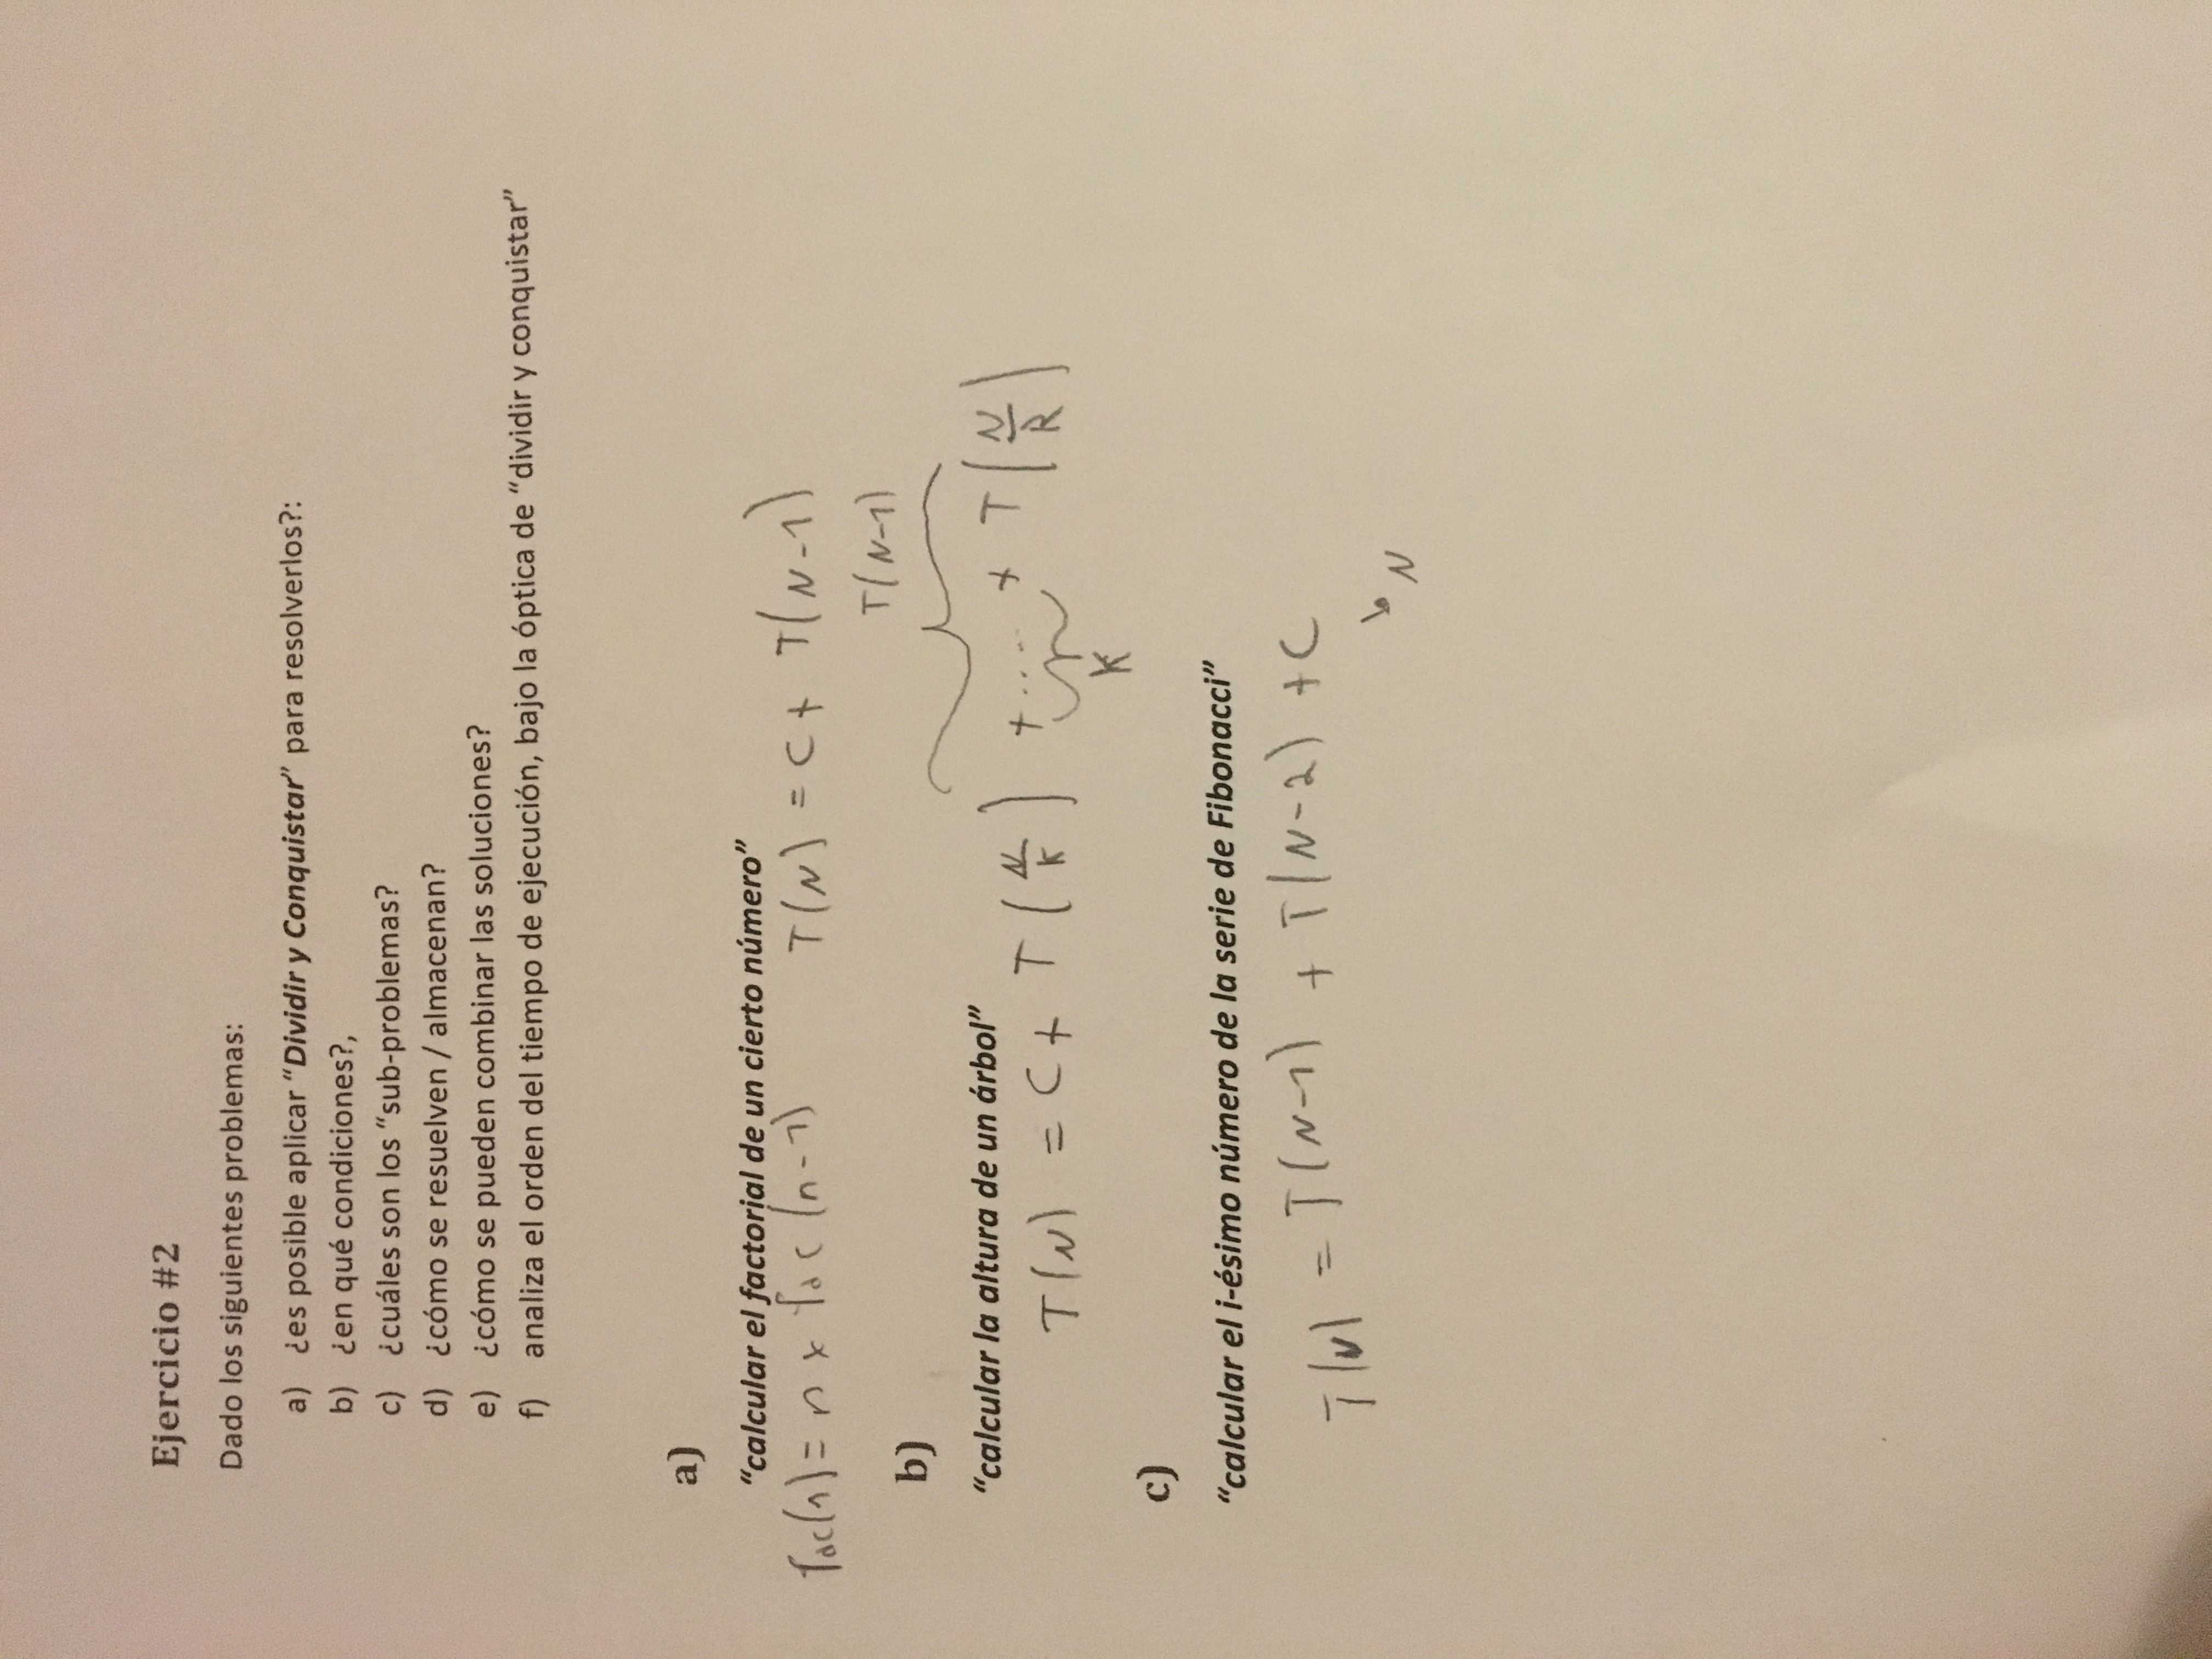 Ejercicio #2
Dado los siguientes problemas:
a) ¿es posible aplicar “Dividir y Conquistar” para resolverlos?:
b) ¿en qué condiciones?,
c) ¿cuáles son los “sub-problemas?
d) ¿cómo se resuelven / almacenan?
e) ¿cómo se pueden combinar las soluciones?
f) analiza el orden del tiempo de ejecución, bajo la óptica de “dividir y conquistar”
a)
“calcular el factorial de un cierto número”
fac(n) = n x fac (n-1) T(N) = C + T(N-1)
T(N-1)
b)
“calcular la altura de un árbol”
T(N) = C + T(N/K) + .... + T(N/R)
K
c)
“calcular el i-ésimo número de la serie de Fibonacci”
T(N) = T(N-1) + T(N-2) + C
N